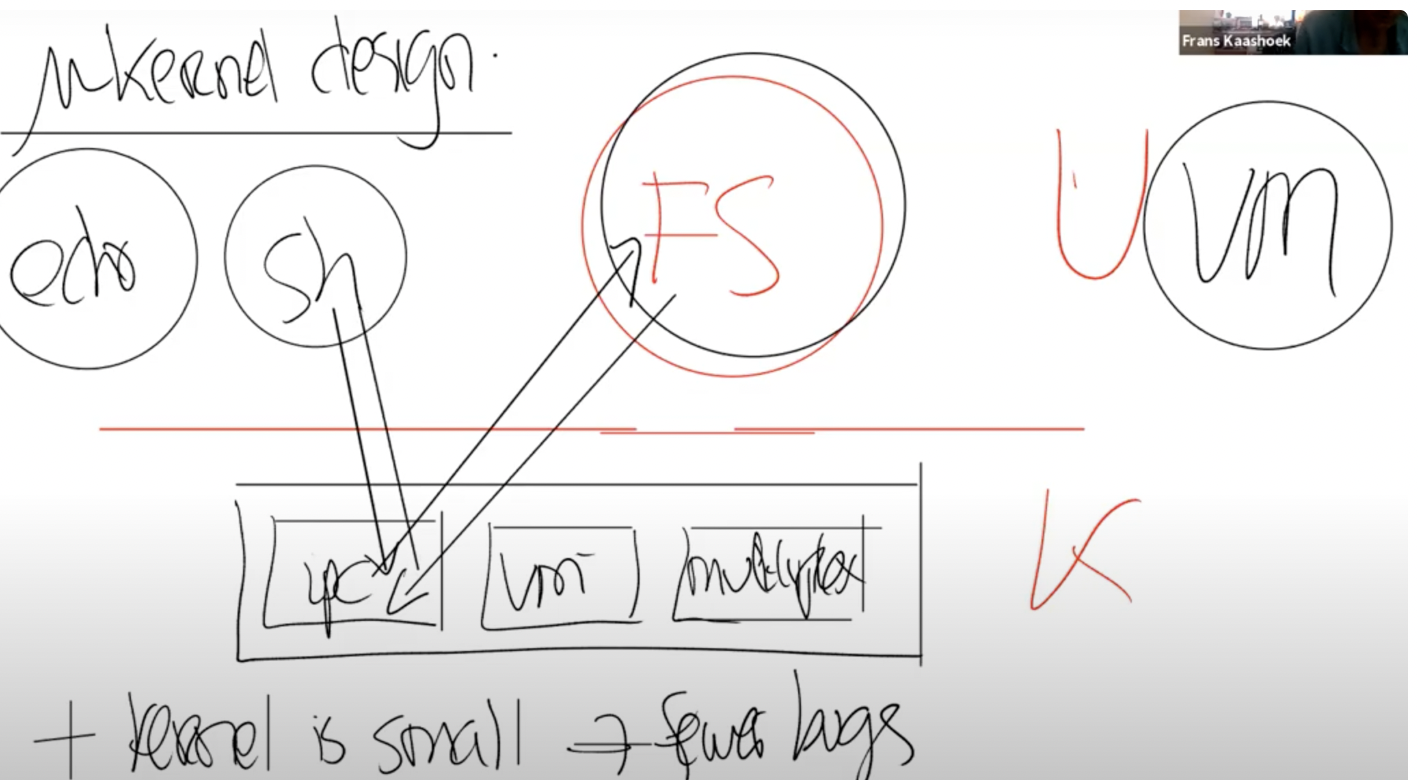 μkernel design.
Frans Kaashoek
echo
sh
FS
U
VM
ipc
vm
multiplex
K
+ kernel is small → fewer bugs